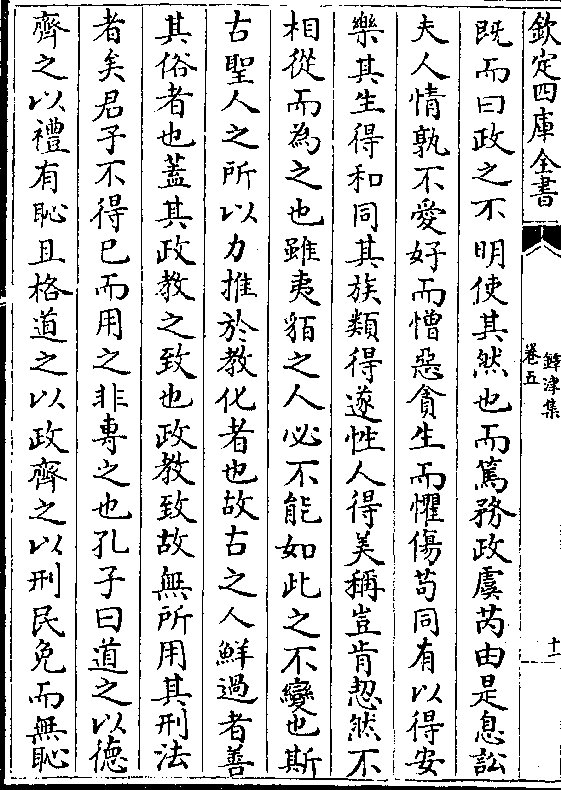 欽定四庫全書
鐔津集
卷五
十一
既而曰政之不明使其然也而篤務政虞芮由是息訟
夫人情孰不愛好而憎惡貪生而懼傷苟同有以得安
樂其生得和同其族類得遂性人得美稱豈肯恝然不
相從而為之也雖夷貊之人必不能如此之不變也斯
古聖人之所以力推於教化者也故古之人鮮過者善
其俗者也蓋其政教之致也政教致故無所用其刑法
者矣君子不得已而用之非專之也孔子曰道之以德
齊之以禮有恥且格道之以政齊之以刑民免而無恥